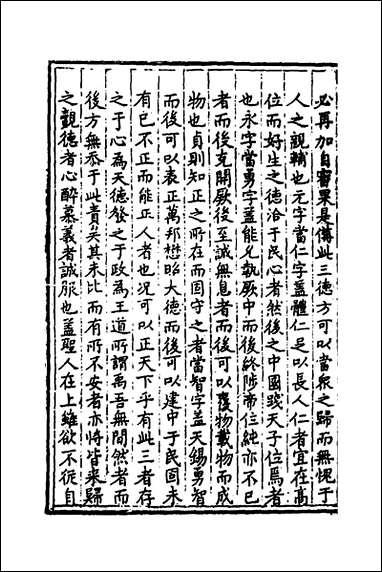 必再加自審果是備此三德方可以當衆之歸而無愧于
人之觀輸也元字當仁字蓋體仁足以長人仁者宜在高
位而好生之德洽于民心者然後之中國踐天子位焉者
也永字當勇字蓋能允執厥中而後終陟帝位純亦不已
者而後克開厥後至誠無息者而後可以覆物載物而成
物也貞則知正之所在而固守之者當智字蓋天錫勇智
而後可以表正萬邦懋昭大德而後可以建中于民固未
有已不正而能正人者也况可以正天下乎有此三者存
之于心為天德發之于政為王道所謂禹吾無間然者而
後方無忝于此責矣其未比而有所不安者亦將皆來歸
之觀德者心醉慕義者誠服也蓋聖人在上雖欲不從自